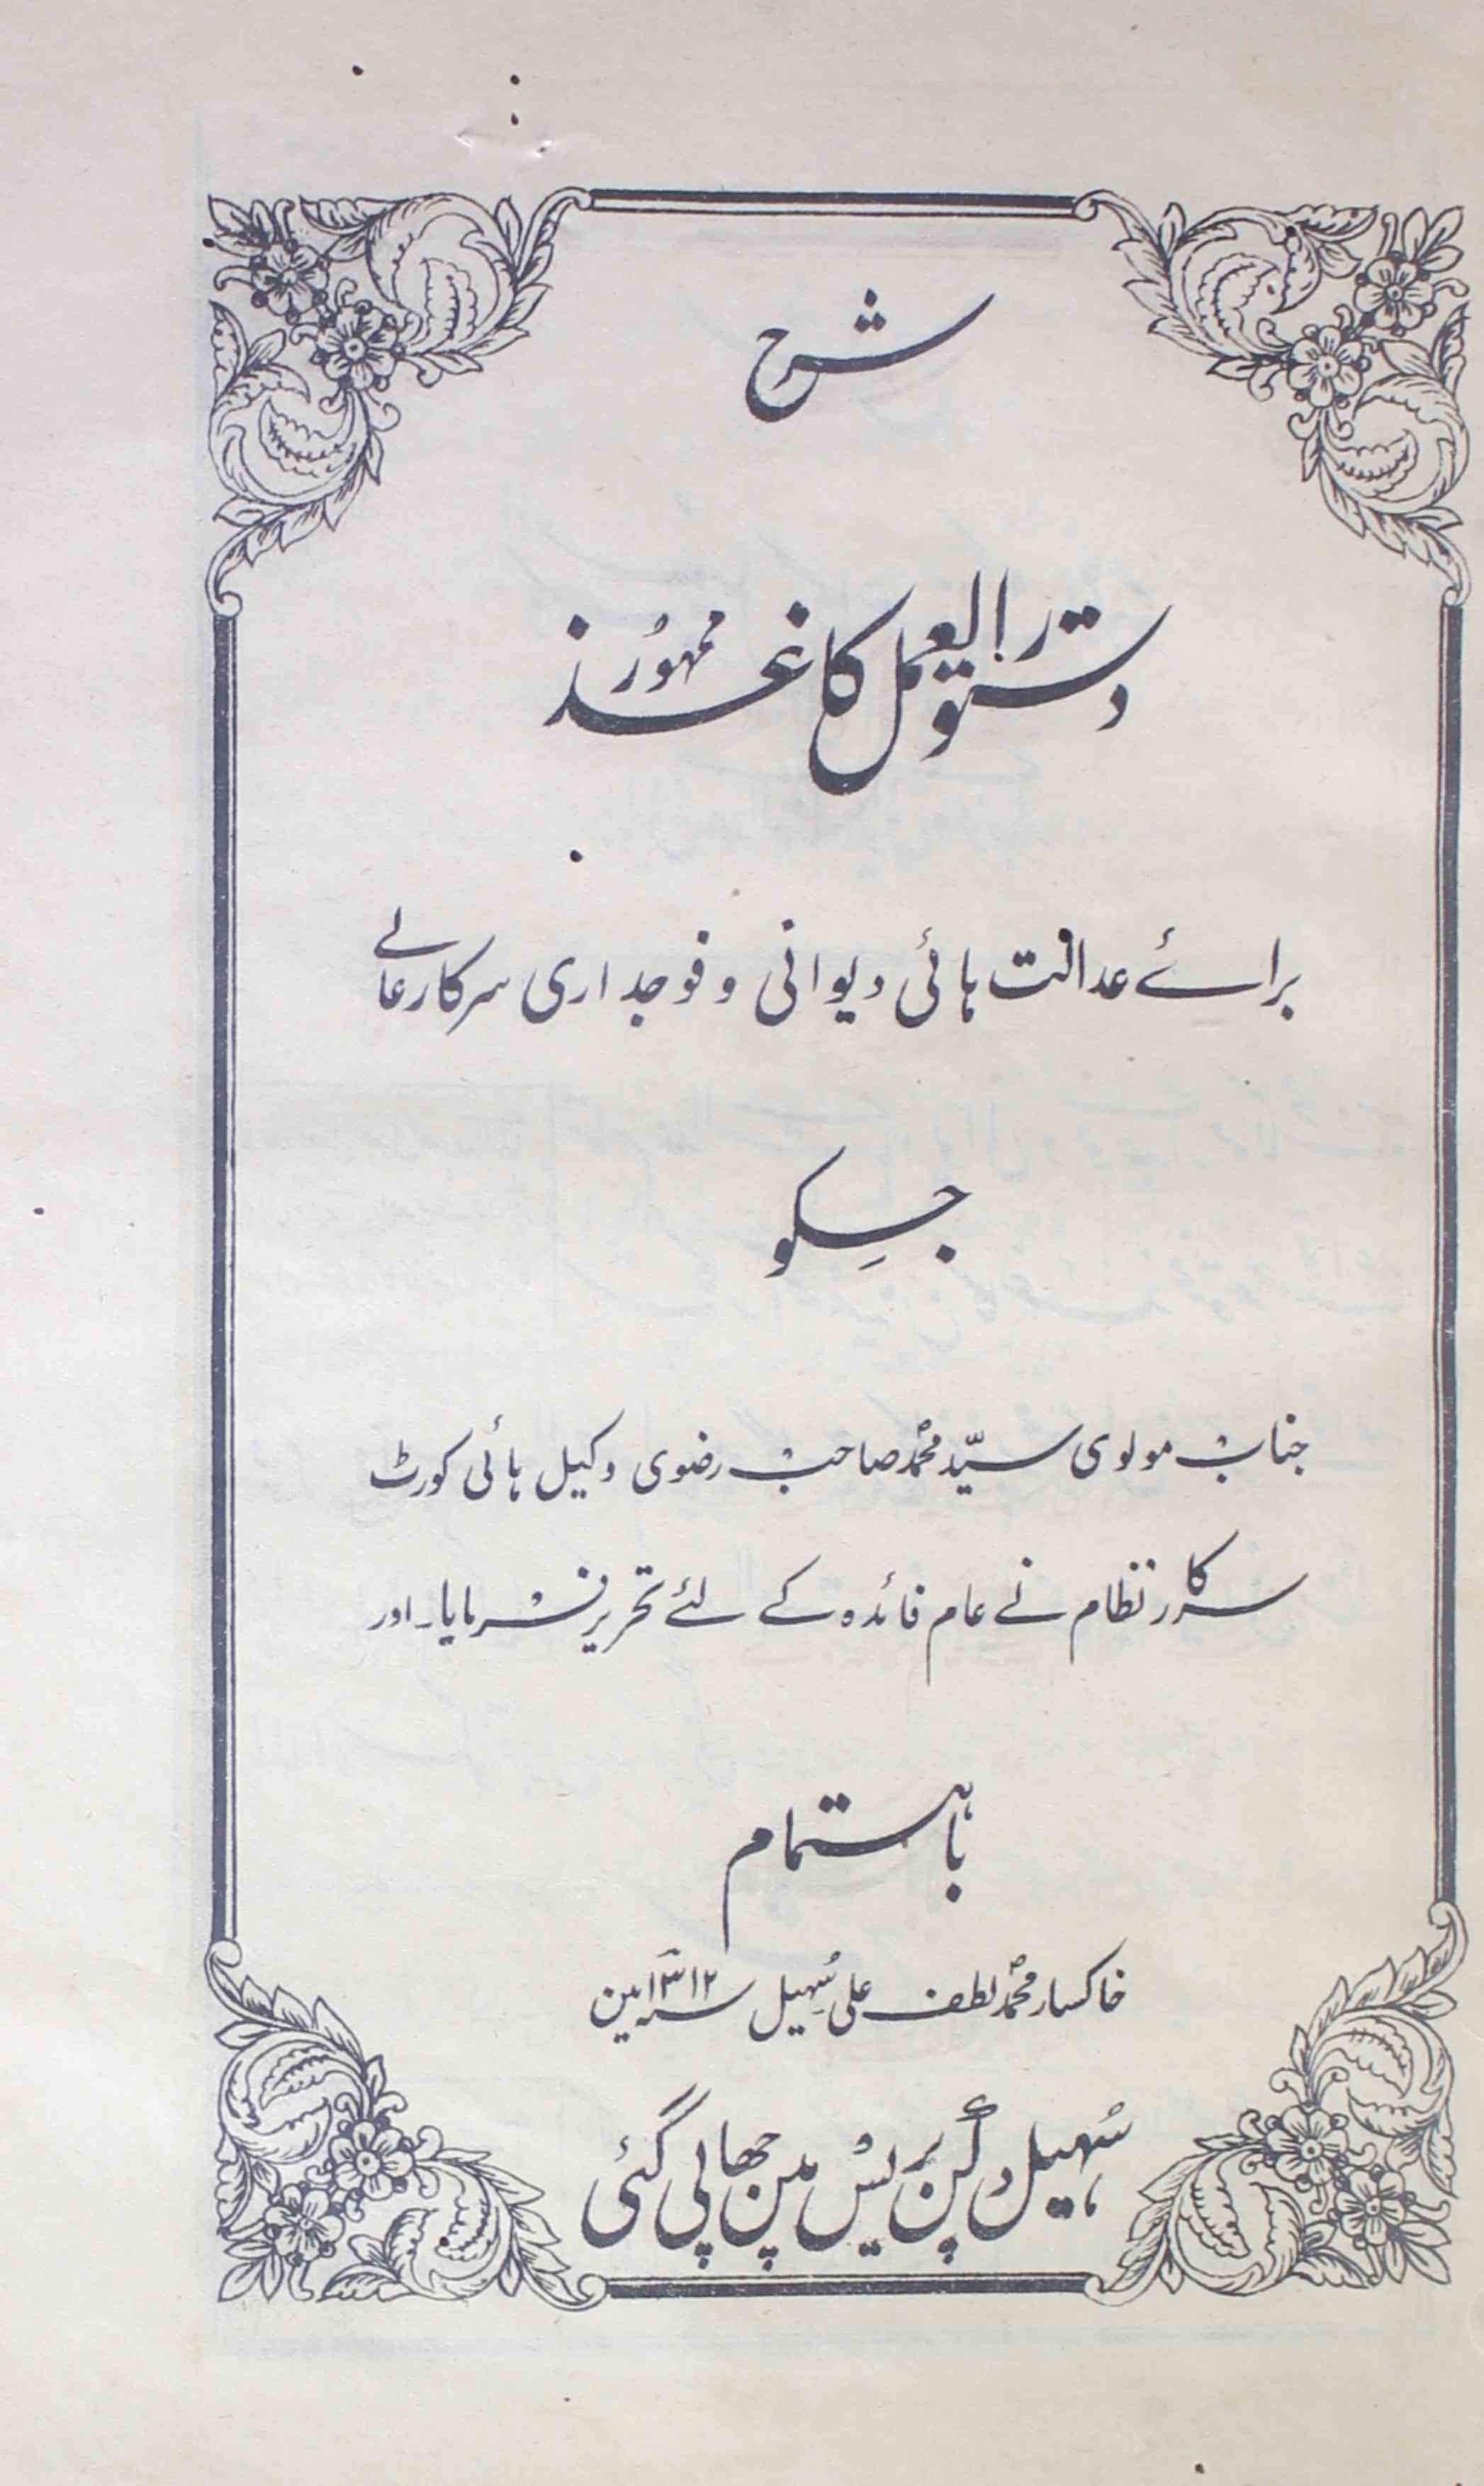 شرح
دستور العمل کاغذ ممہور
برائے عدالت ہائی دیوانی و فوجداری سرکار عالے
جسکو
جناب مولوی سیّد محمد صاحب رضوی وکیل ہائی کورٹ
سرکار نظام نے عام فائدہ کے لئے تحریر فرمایا۔ اور
باہتمام
خاکسار محمد لطف علی سُہیل سنہ ۱۳۱۲ مین
سُہیل دکن پریس مین چھاپی گئی